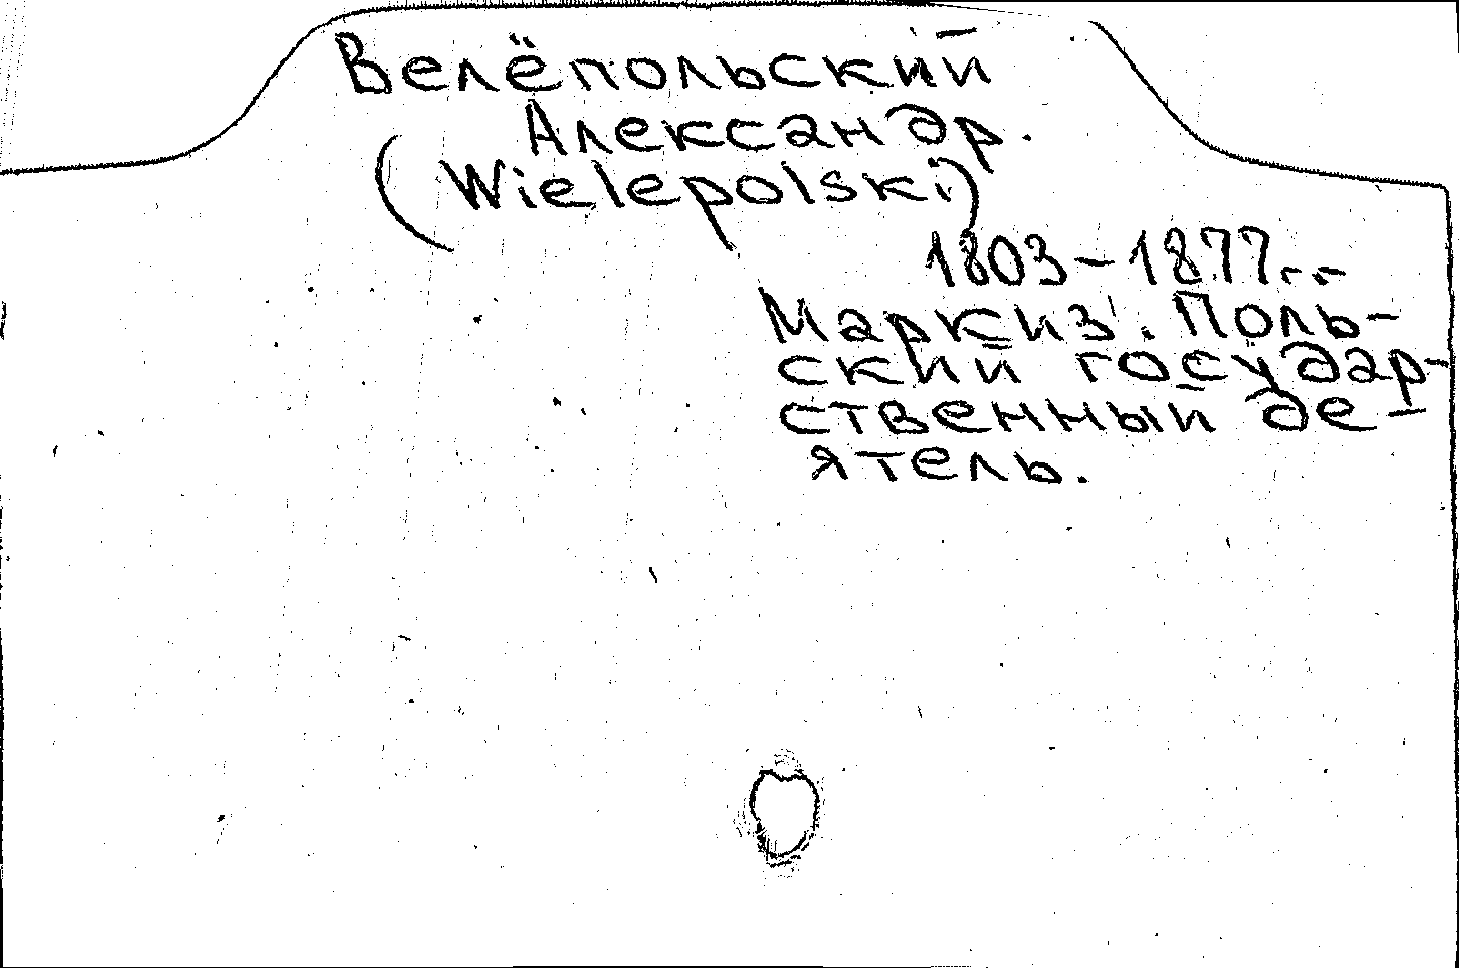 Велёпольский
Александр.
(Wielepolski)
1803-1877г.г.
Маркиз. Поль-
ский государ-
ственный де-
ятель.